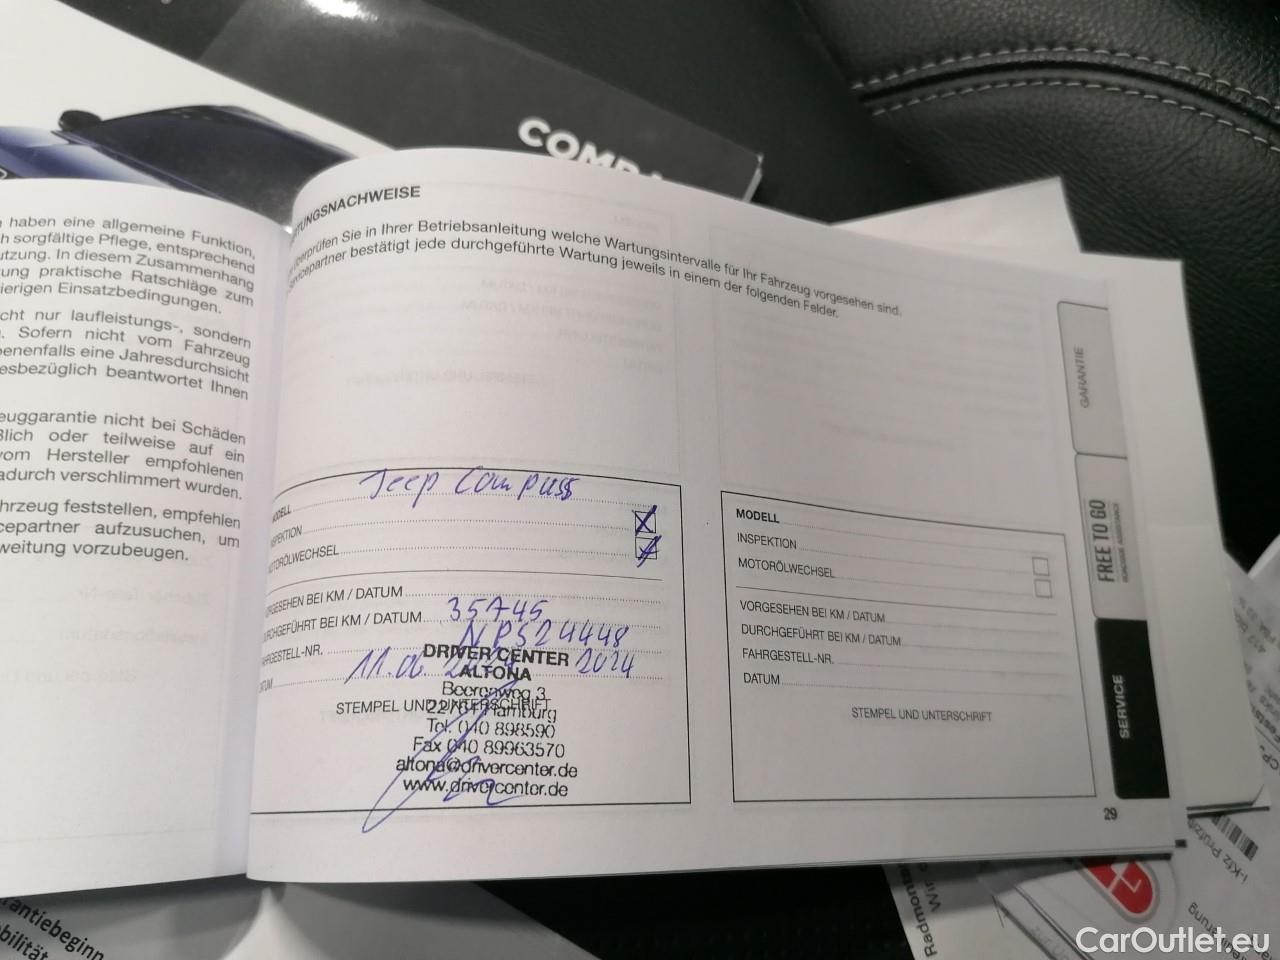 COMPA
haben eine allgemeine Funktion,
h sorgfältige Pflege, entsprechend
utzung. In diesem Zusammenhang
ung praktische Ratschläge zum
ierigen Einsatzbedingungen.
cht nur laufleistungs-, sondern
. Sofern nicht vom Fahrzeug
benenfalls eine Jahresdurchsicht
esbezüglich beantwortet Ihnen
euggarantie nicht bei Schäden
ßlich oder teilweise auf ein
vom Hersteller empfohlenen
adurch verschlimmert wurden.
hrzeug feststellen, empfehlen
cepartner aufzusuchen, um
weitung vorzubeugen.
RTUNGSNACHWEISE
erprüfen Sie in Ihrer Betriebsanleitung welche Wartungsintervalle für Ihr Fahrzeug vorgesehen sind.
Servicepartner bestätigt jede durchgeführte Wartung jeweils in einem der folgenden Felder.
MODELL Jeep Compass
INSPEKTION X
MOTORÖLWECHSEL X
VORGESEHEN BEI KM / DATUM
DURCHGEFÜHRT BEI KM / DATUM 35745
FAHRGESTELL-NR. NP524448
DATUM 11.06. 2024
STEMPEL UND UNTERSCHRIFT
DRIVER CENTER
ALTONA
Beerenweg 3
22761 Hamburg
Tel. 040 898590
Fax 040 89963570
altona@drivercenter.de
www.drivercenter.de
MODELL
INSPEKTION
MOTORÖLWECHSEL
VORGESEHEN BEI KM / DATUM
DURCHGEFÜHRT BEI KM / DATUM
FAHRGESTELL-NR.
DATUM
STEMPEL UND UNTERSCHRIFT
GARANTIE
FREE TO GO
SERVICE
29
rantiebeginn
bilität
i-Kfz Prüfzi
Radmonta
Wir
CarOutlet.eu